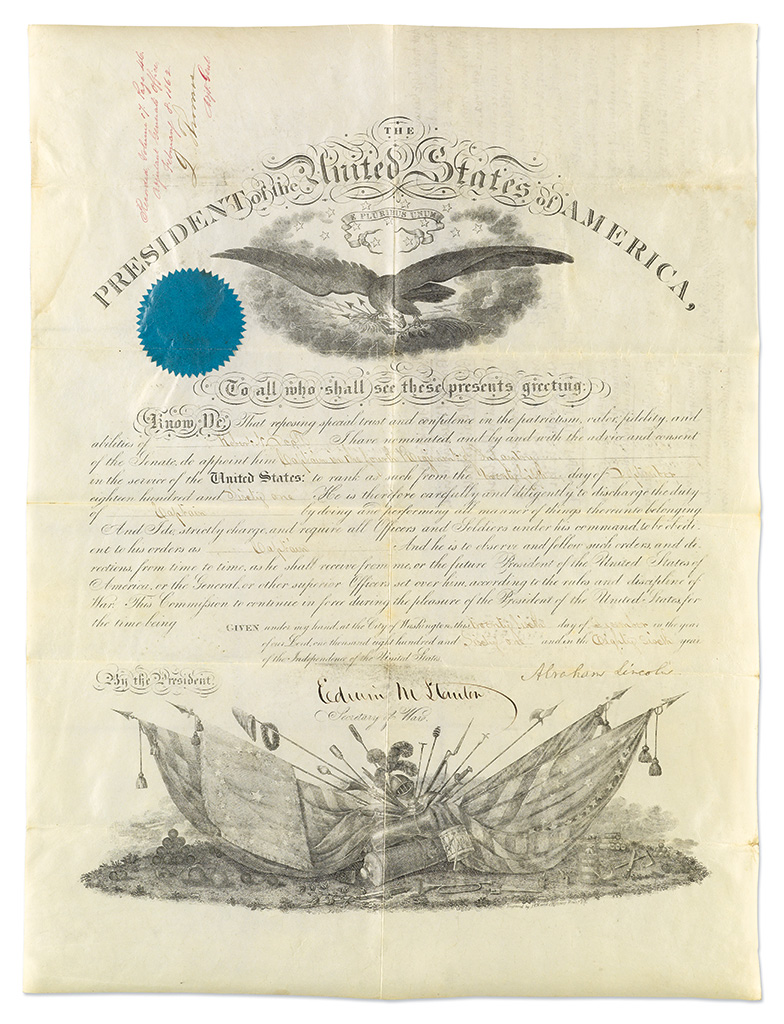 Volume 17 Page
Adjutant General's Office
February 8, 1862
THE
PRESIDENT of the United States of AMERICA,
E PLURIBUS UNUM
To all who shall see these presents greeting:
Know Ye, That reposing special trust and confidence in the patriotism, valor, fidelity, and
abilities of I have nominated, and by and with the advice and consent
of the Senate, do appoint him Captain in the
in the service of the United States: to rank as such from the day of
eighteen hundred and Sixty one He is therefore carefully and diligently to discharge the duty
of Captain by doing and performing all manner of things thereunto belonging
And I do, strictly charge, and require all Officers and Soldiers under his command, to be obedi-
ent to his orders as Captain And he is to observe and follow such orders, and di-
rections, from time to time, as he shall receive from me, or the future President of the United States of
America, or the General, or other superior Officers set over him, according to the rules and discipline of
War. This Commission to continue in force during the pleasure of the President of the United States, for
the time being
GIVEN under my hand, at the City of Washington, this day of in the year
of our Lord, one thousand eight hundred and and in the Eighty Sixth year
of the Independence of the United States.
By the President.
Abraham Lincoln
Edwin M Stanton
Secretary of War.